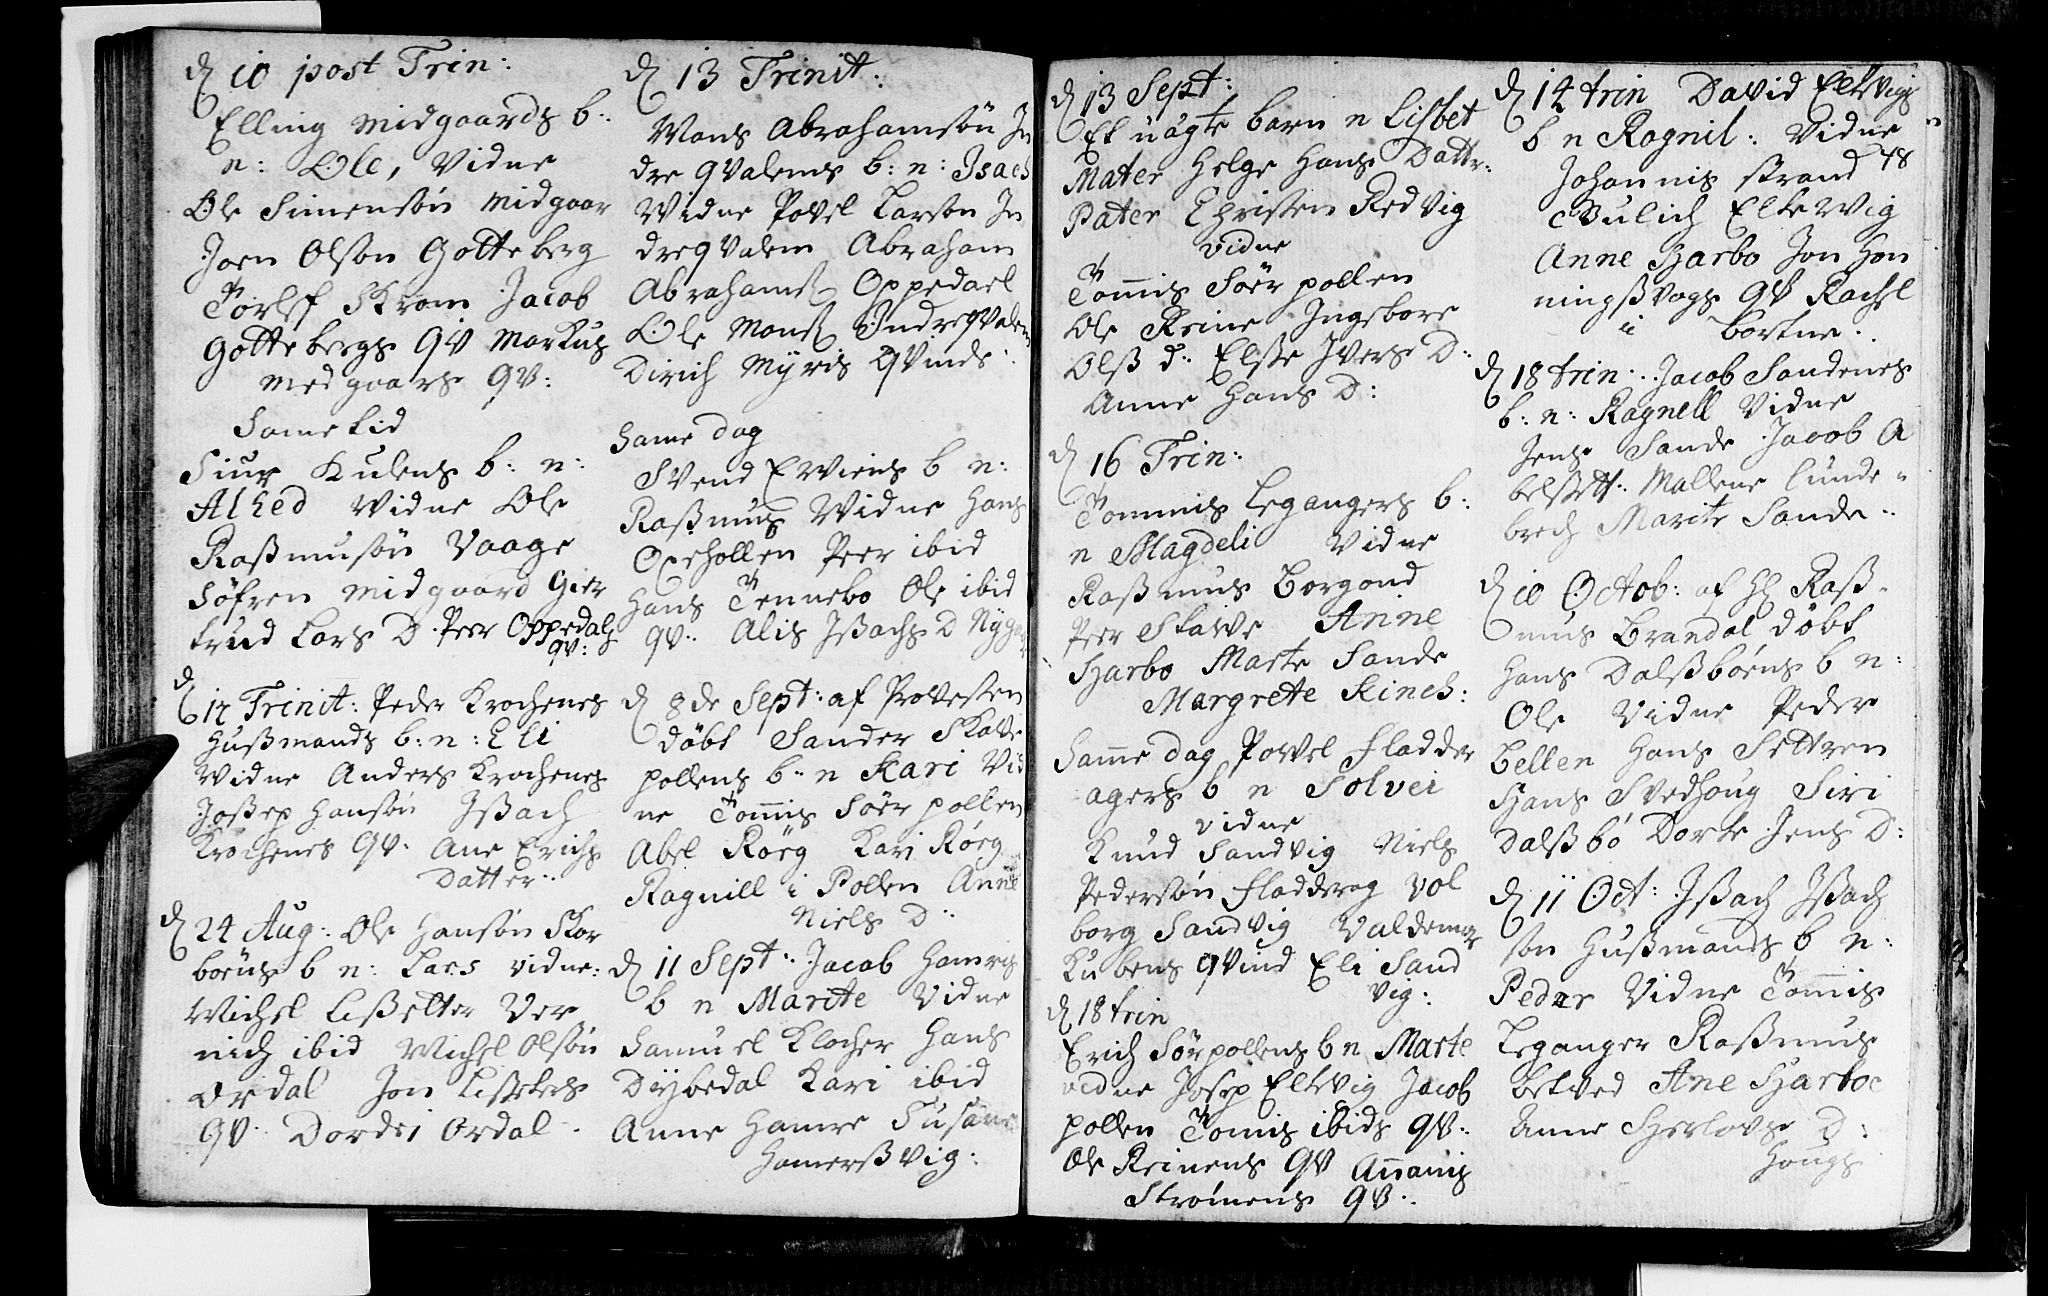 D 10 post Trin:
Elling Midgaards b:
n: Ole, Vidne
Ole Simensøn Midgaar
Joen Olsøn Gotteberg
Torlef Skram Jacob
Gottebergs qv Markus
Medgaars qv:
Same tid
Siur Kulens b: n:
Alhed Vidne Ole
Raßmusøn Vaage
Søfren Midgaard Gier
trud Lars D. Peer Oppedals
qv:
D 12 Trinit: Peder Krochenes
Hußmands b: n: Eli
Vidne Anders Krochenes
Joßep Hansøn Ißach
Krochenes qv. Ane Erichs
Datter:
D 24 Aug: Ole Hansøn Skor
boens b n: Lars vidne:
Michel Lißetter Ver
nich ibid Michel Olsøn
Ordal Jon
qv: Dordei Ordal.
D 13 Trinit:
Mons Abrahamsøn In
dre qvalems b: n: Isach
Vidne Povel Larsøn In
dreqvalem Abraham
Abrahamß Oppedael
Ole Monß Indreqvalem
Dirich Myris qvinde:
Same dag
Svend Erviens b n:
Raßmus Vidne Hans
Oxehollen Peer ibid
Hans Tennebo Ole ibid
qv: Alis Ißachs D Nygaar
D 8de Sept: af Provesten
døbt Sander Skave
pollens b: n Kari Vid
ne Tom̄is Sørpollen
Abel Rørg Kari Rørg
Ragnill i Pollen Anne
Niels D:
D 11 Sept: Jacob Hamris
b n Marite Vidne
Samuel Klocher Hans
Dybedal Kari ibid
Anne Hamre Susane
Hamerßvig:
D 13 Sept:
Et uægte barn n Lisbet
Mater Helge Hans Dattr:
Pater Christen Redvig
vidne
Tom̄is Søerpollen
Ole Reine Ingebore
Olß d: Elsse Ivers D:
Anne Hans D:
D 16 Trin:
Tommis Legangers b:
n Magdeli Vidne
Raßmus Borgond
Peer Skavve Anne
Harbo Marte Sande
Margrete Kinch:
Sam̄e dag Povel Fladder
agers b n Solvei
vidne
Knud Sandvig Niels
Pedersøn Fladderag Vol
borg Sandvig Valdemar
Kubens qvind Eli Sand
vig:
D 18 trin
Erich Sørpollens b n Marte
vidne Josep Eltvig Jacob
pollen Tomis ibids qv:
Ole Reinens qv An̄anis
Strømens qv:
D 14 trin David Eltevigs
b n Ragnil: Vidne
48
Johannis Strand
Bulich Eltevig
Anne Harbo Jon Hon
ningßvogs qv Rachel
i bortne:
D 18 trin: Jacob Sandenes
b: n: Ragnell Vidne
Jens Sande Jacob A
belsett: Mallene Lunde
brech Marite Sande:
D 10 Octob: af H Raß-
mus Brandal døbt
Hans Dalßbøens b n:
Ole Vidne Peder
Bellen Hans Settren
Hans Svedhoug Siri
Dalßbø Dorte Jens D:
D 11 Oct: Ißach Ißach
søn Hußmands b n:
Peder Vidne Tom̄is
Leganger Raßmus
betved Ane Harboe
Anne Herlovs D:
Hougs